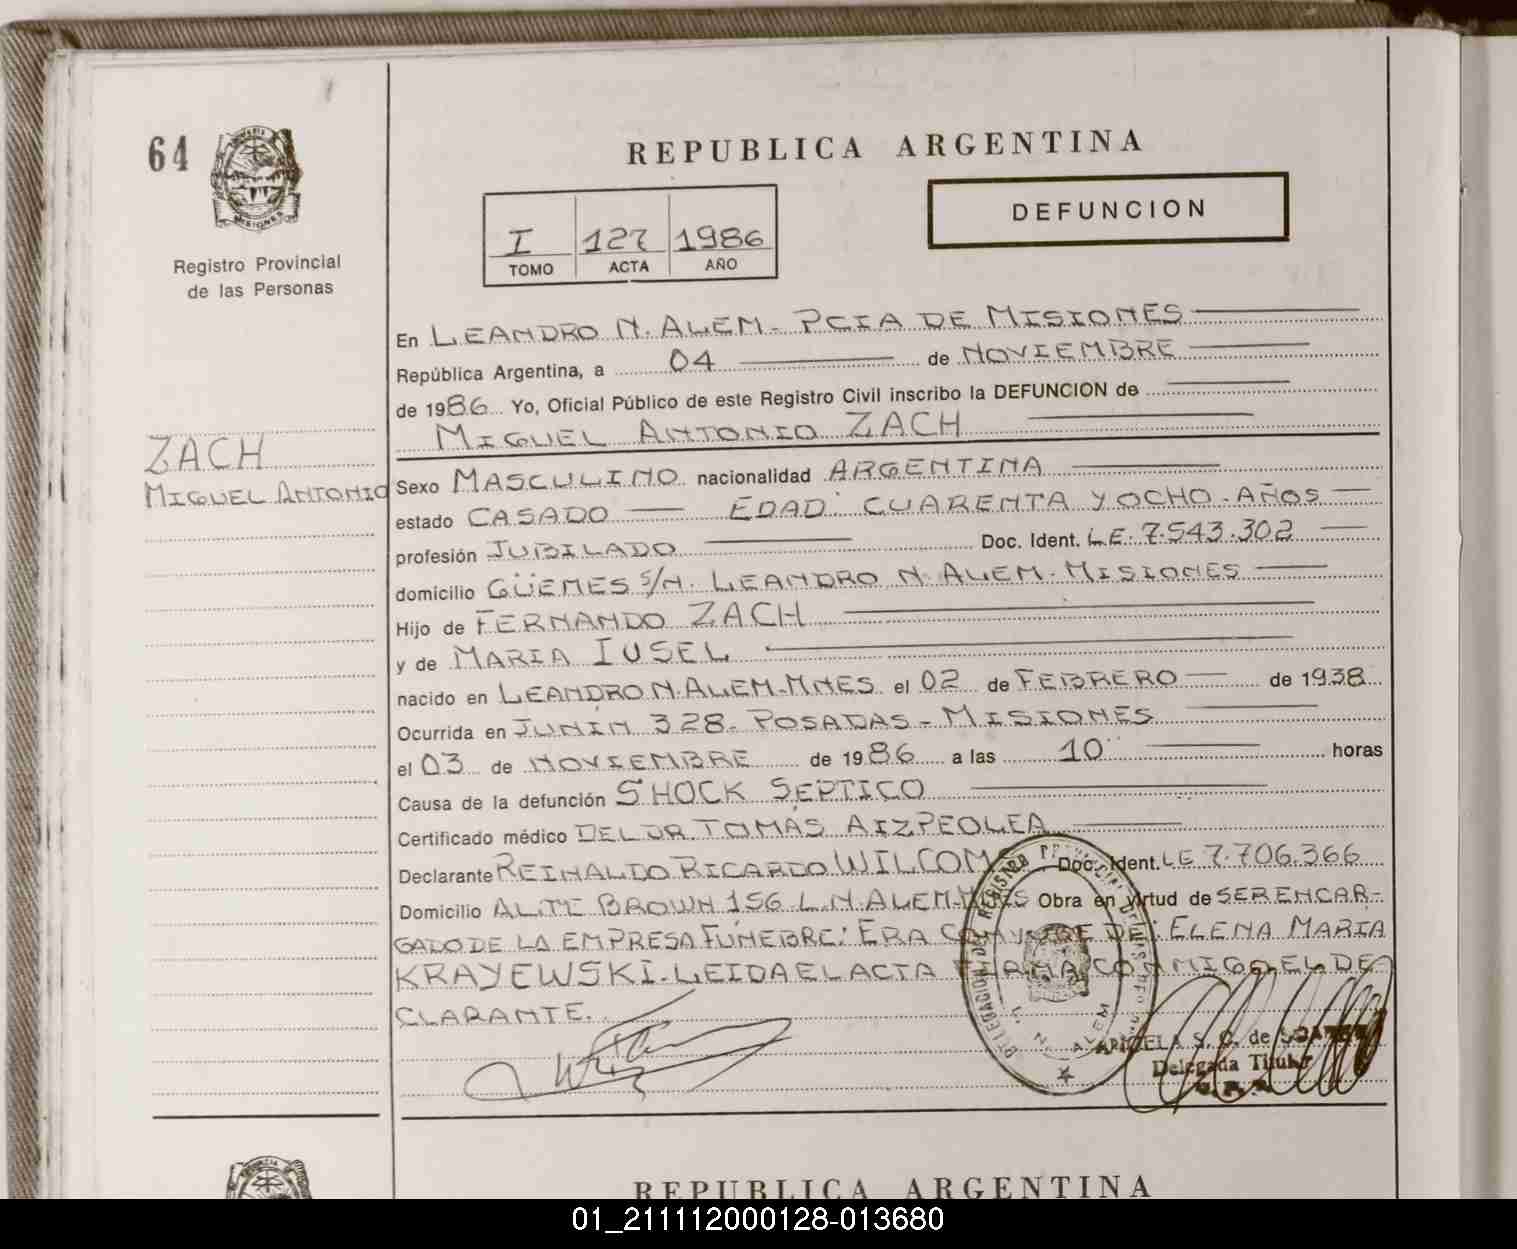 64
MISIONES
Registro Provincial
de las Personas
ZACH
MIGUEL ANTONIO
REPUBLICA ARGENTINA
I 127 1986
TOMO ACTA AÑO
DEFUNCION
En LEANDRO N. ALEM - PCIA DE MISIONES
República Argentina, a 04 de NOVIEMBRE
de 1986 Yo, Oficial Público de este Registro Civil inscribo la DEFUNCION de
MIGUEL ANTONIO ZACH
Sexo MASCULINO nacionalidad ARGENTINA
estado CASADO EDAD: CUARENTA Y OCHO - AÑOS
profesión JUBILADO Doc. Ident. L.E. 7.543.302
domicilio GÜEMES S/N. LEANDRO N. ALEM - MISIONES
Hijo de FERNANDO ZACH
y de MARIA IUSEL
nacido en LEANDRO N. ALEM - MNES el 02 de FEBRERO de 1938
Ocurrida en JUNIN 328 - POSADAS - MISIONES
el 03 de NOVIEMBRE de 1986 a las 10 horas
Causa de la defunción SHOCK SEPTICO
Certificado médico DEL DR. TOMÁS AIZPEOLEA
Declarante REINALDO RICARDO Doc. Ident. LE 7.706.366
Domicilio ALTE BROWN 156 L.N. ALEM - MNES Obra en virtud de SER ENCAR-
GADO DE LA EMPRESA FUNEBRE: ERA CONYUGE DE: ELENA MARIA
KRAYEWSKI. LEIDA EL ACTA FIRMA CONMIGO EL DE-
CLARANTE.
DELEGACION DEL REGISTRO PROVINCIAL DE
L. N. ALEM
S. C. de
Delegada Titular
REPUBLICA ARGENTINA
01_211112000128-013680